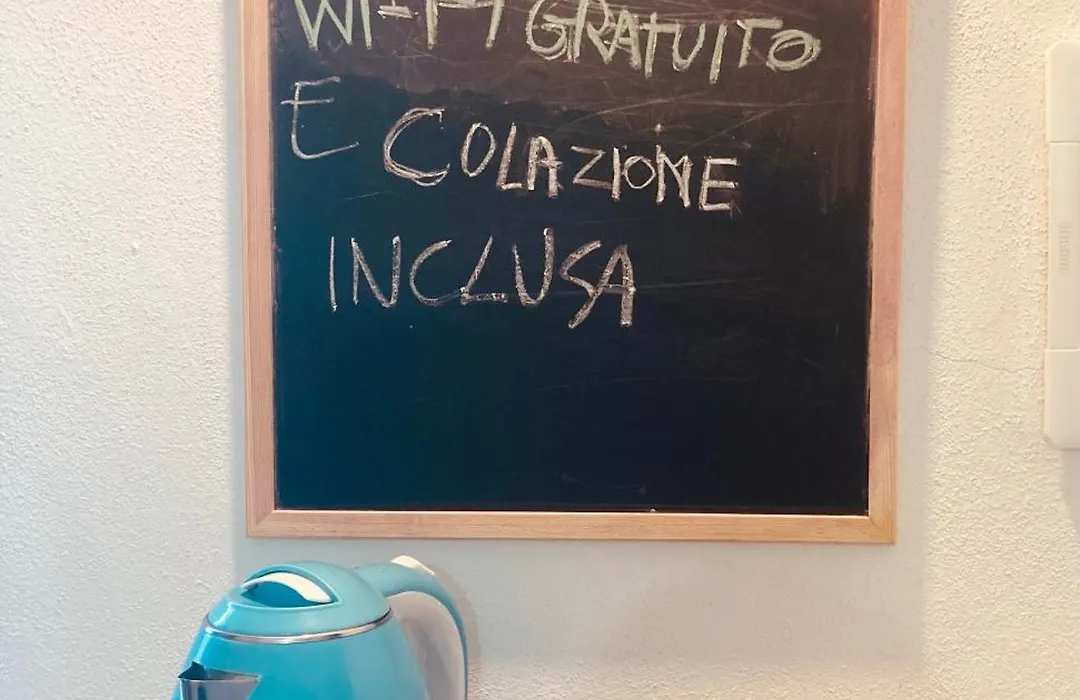 WI-FI GRATUITO
E COLAZIONE
INCLUSA